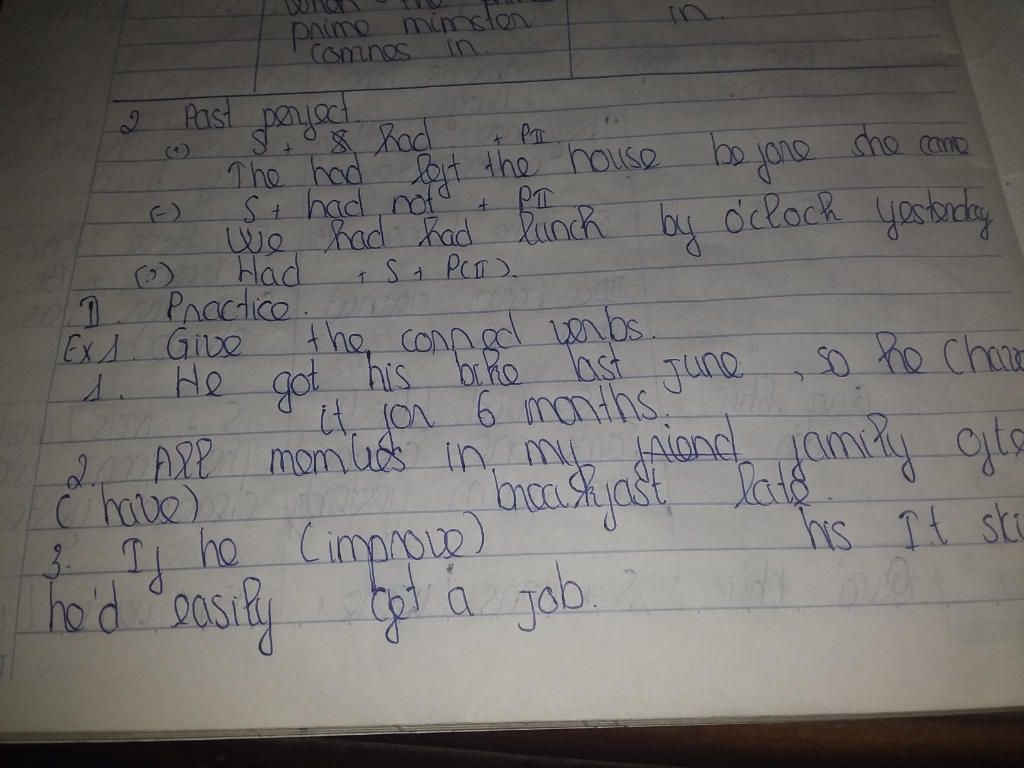 when the prime
prime minister in.
comnes in.
2. Past perfect.
(+) S + had + PII
The had left the house before she came
(-) S + had not + PII
We had had lunch by o'clock yesterday
(?) Had + S + P(II).
II. Practice.
Ex1. Give the conned verbs.
1. He got his bike last june, so he
it for 6 months.
2. All members in my friend family ofte
(have) breaskfast late.
3. If he (improve) his It ski
he'd easily get a job.